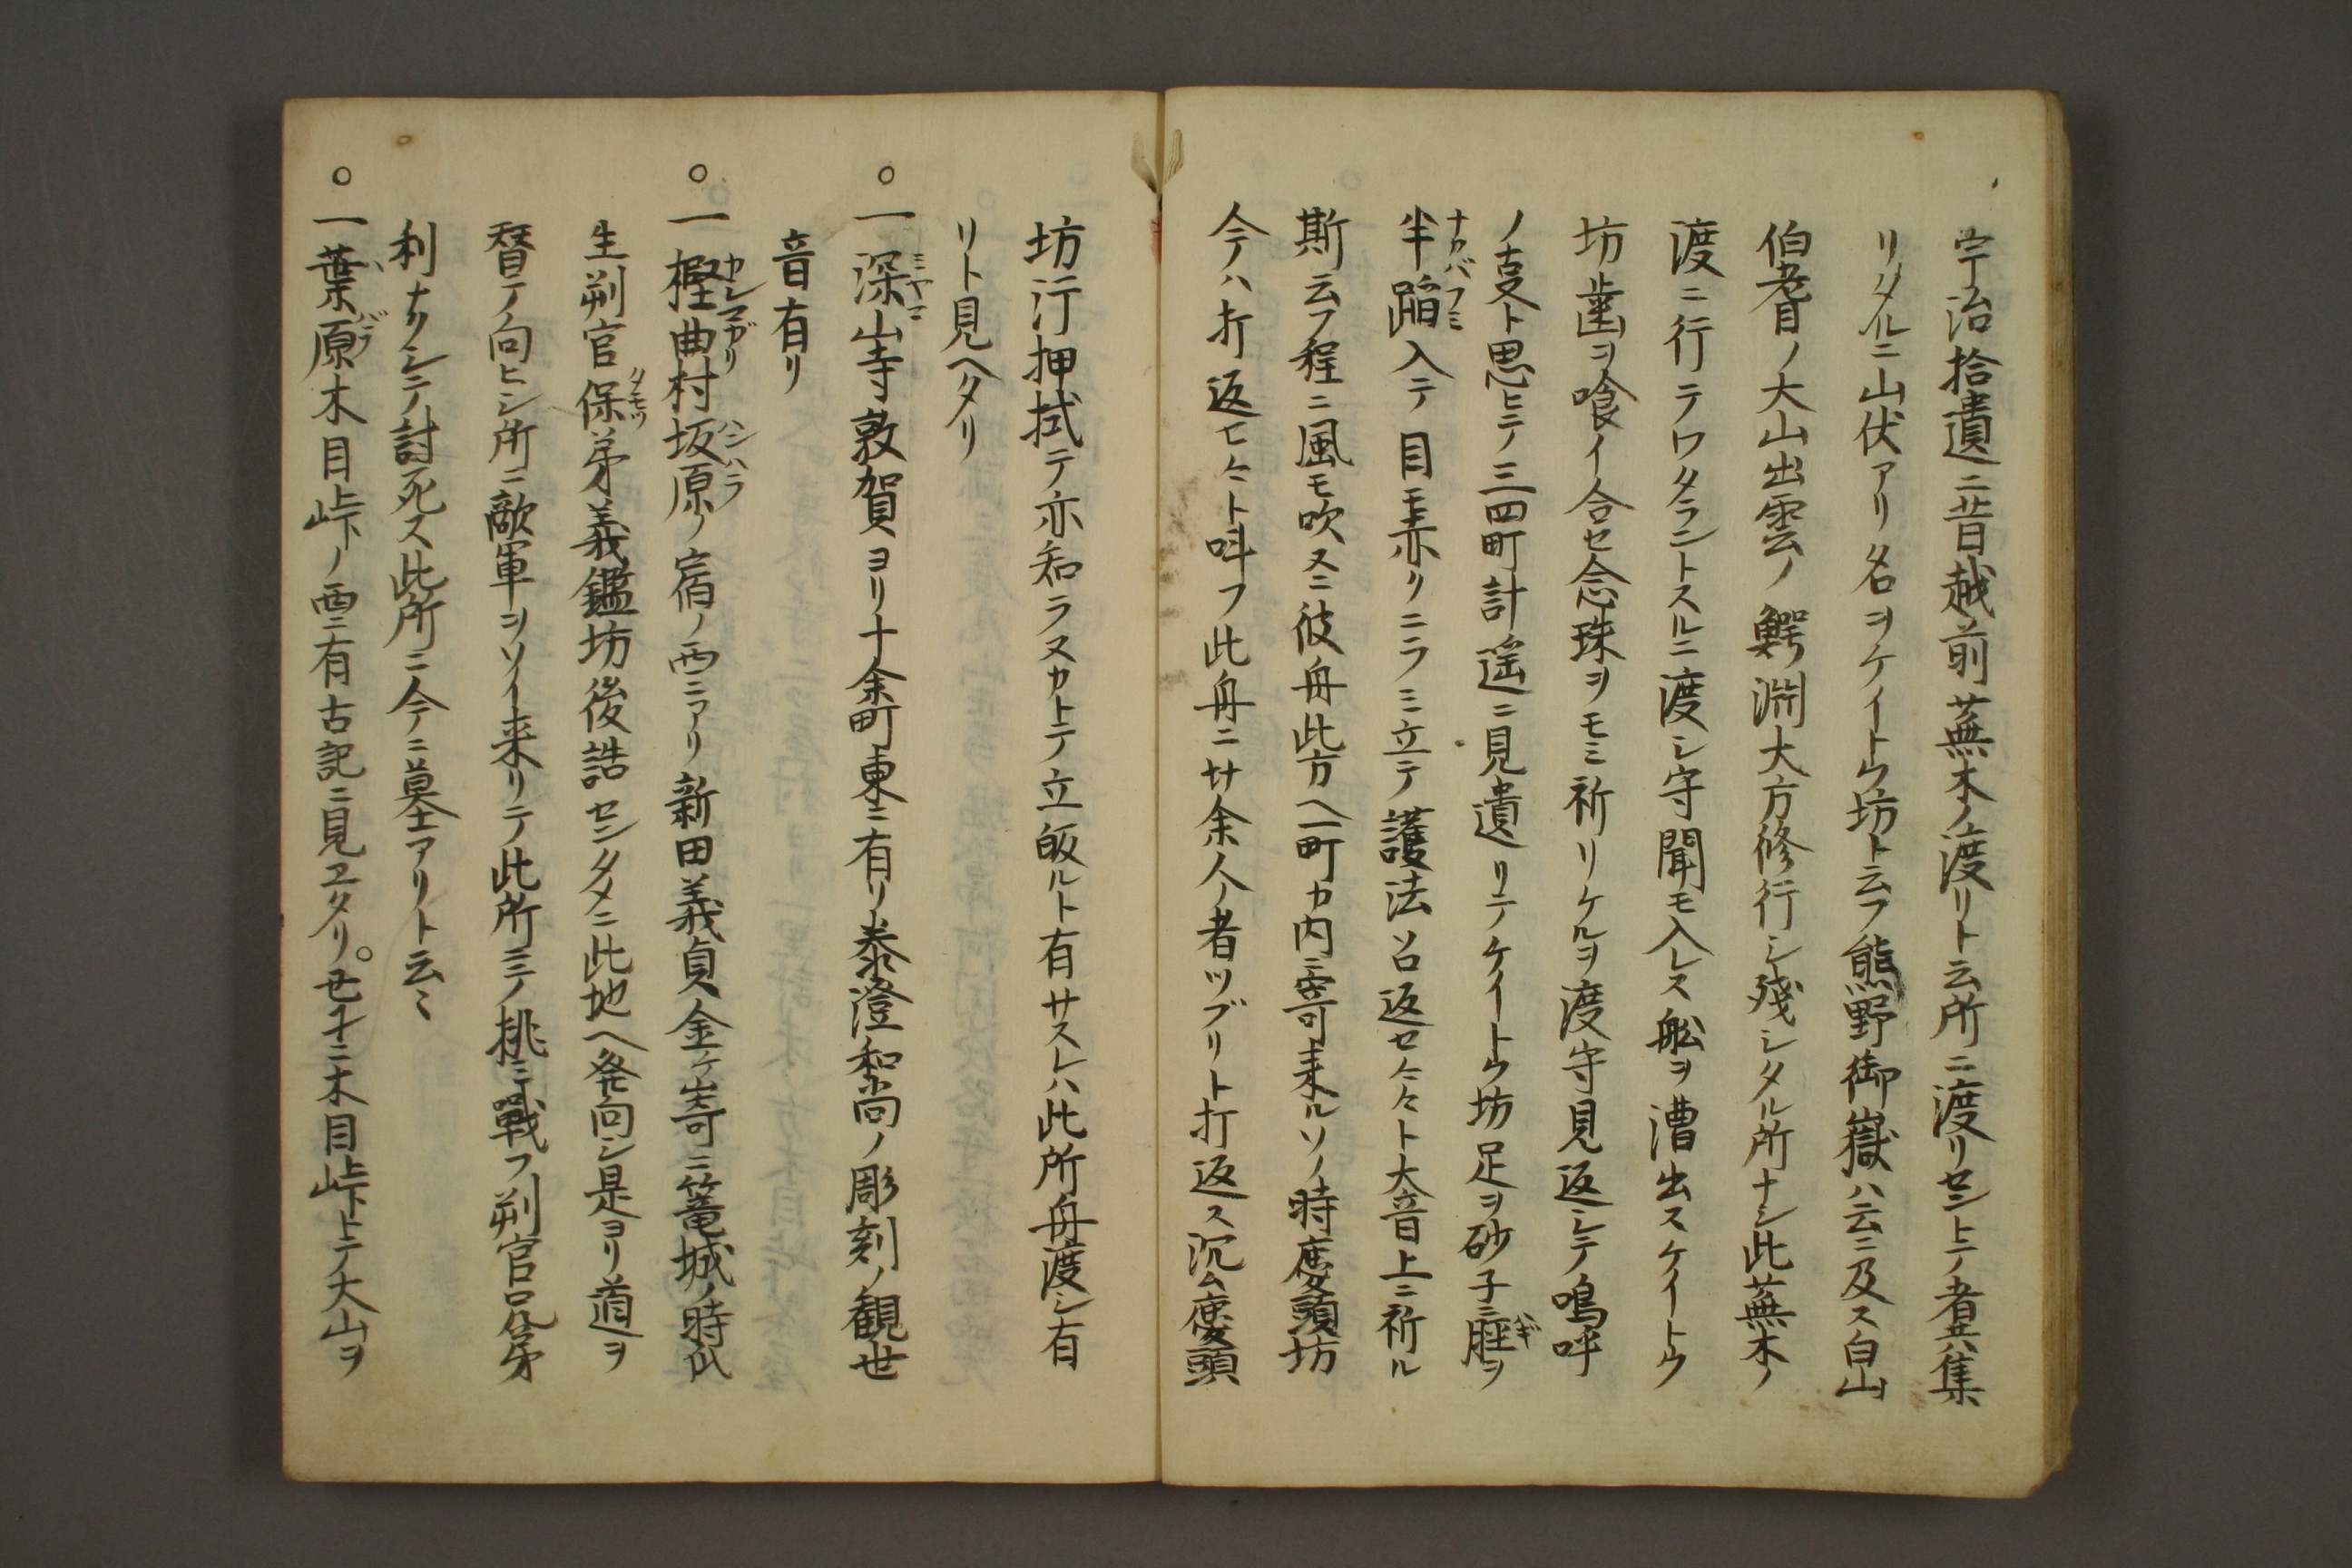 宇治拾遺ニ昔越前蕪木ノ渡リト云所ニ渡リセントテ者共集
リタルニ山伏アリ名ヲケイトウ坊ト云フ熊野御嶽ハ云ニ及ス白山
伯耆ノ大山出雲ノ鰐淵大方修行シ残シタル所ナシ此蕪木ノ
渡ニ行テワタラントスルニ渡シ守聞モ入レス舩ヲ漕出スケイトウ
坊歯ヲ喰イ合セ念珠ヲモミ祈リケルヲ渡守見返シテ嗚呼
ノ支ト思ヒテ三四町計遥ニ見遣リテケイトウ坊足ヲ砂子ニ脛ヲ
半蹈入テ目モ赤クニラミ立テ護法召返セ〱々ト大音上ニ祈ル
斯云フ程ニ風モ吹ヌニ彼舟此方ヘ一町カ内ニ寄来ルソノ時慶頭坊
今ハ打返セ〱ト呌フ此舟ニ廿余人ノ者ツブリト打返ス沉ム慶頭
坊汗押拭テ亦知ラヌカトテ立皈ルト有サスレハ此所舟渡シ有
リト見ヘタリ
○一深山寺敦賀ヨリ十余町東ニ有リ泰澄和尚ノ彫刻ノ観世
音有リ
○一樫曲村坂原ノ宿ノ西ニアリ新田義貞金ケ嵜ニ篭城ノ時瓜
生判官保弟義鑑坊後詰センタメニ此地ヘ発向シ是ヨリ道ヲ
替テ向ヒシ所ニ敵軍ヲソイ来リテ此所ニテ挑ミ戰フ判官兄弟
利ナクシテ討死ス此所ニ今ニ墓アリト云〻
○一葉原木目峠ノ西ニ有古記ニ見ヱタリ○世ニ木目峠トテ大山ヲ